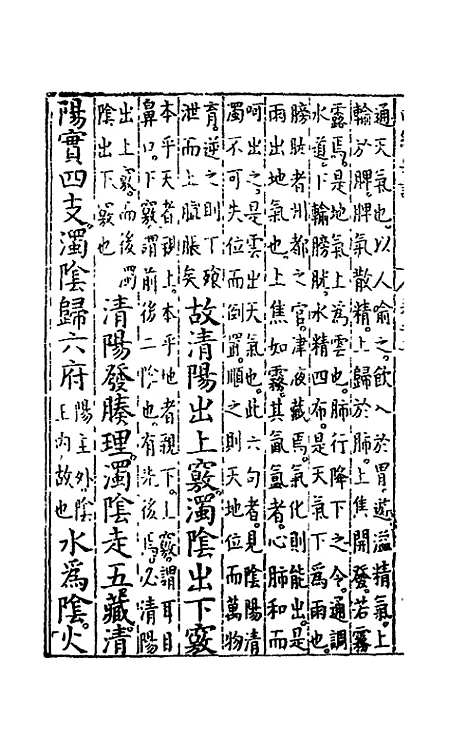 通天氣也以人喻之飲入於胃遊溢精氣上
輸於脾脾氣散精上歸於肺上焦開發若霧
露焉是地氣上為雲也肺行降下之令通調
水道下輸膀胱水精四布是天氣下為雨也
膀胱者州都之官津液藏焉氣化則能出是
雨出地氣也上焦如霧其氤氳者心肺和而
呵出之是雲出天氣也此六句者見陰陽清
濁不可失位而倒置順之則天地位而萬物
育逆之則下飧
泄而上䐜脹矣
故清陽出上竅濁陰出下竅
本乎天者親上本乎地者親下上竅謂耳目
鼻口下竅謂前後二陰也有先後焉必清陽
出上竅而後濁
陰出下竅也
清陽發腠理濁陰走五藏清
陽實四支濁陰歸六府
陽主外陰
主內故也
水為陰火